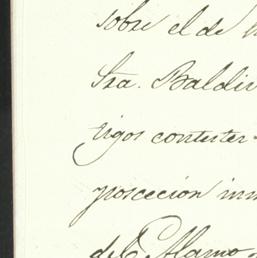 sobre el de
Sra. Baldi
tigos contester
proseccion inm
del Alamo